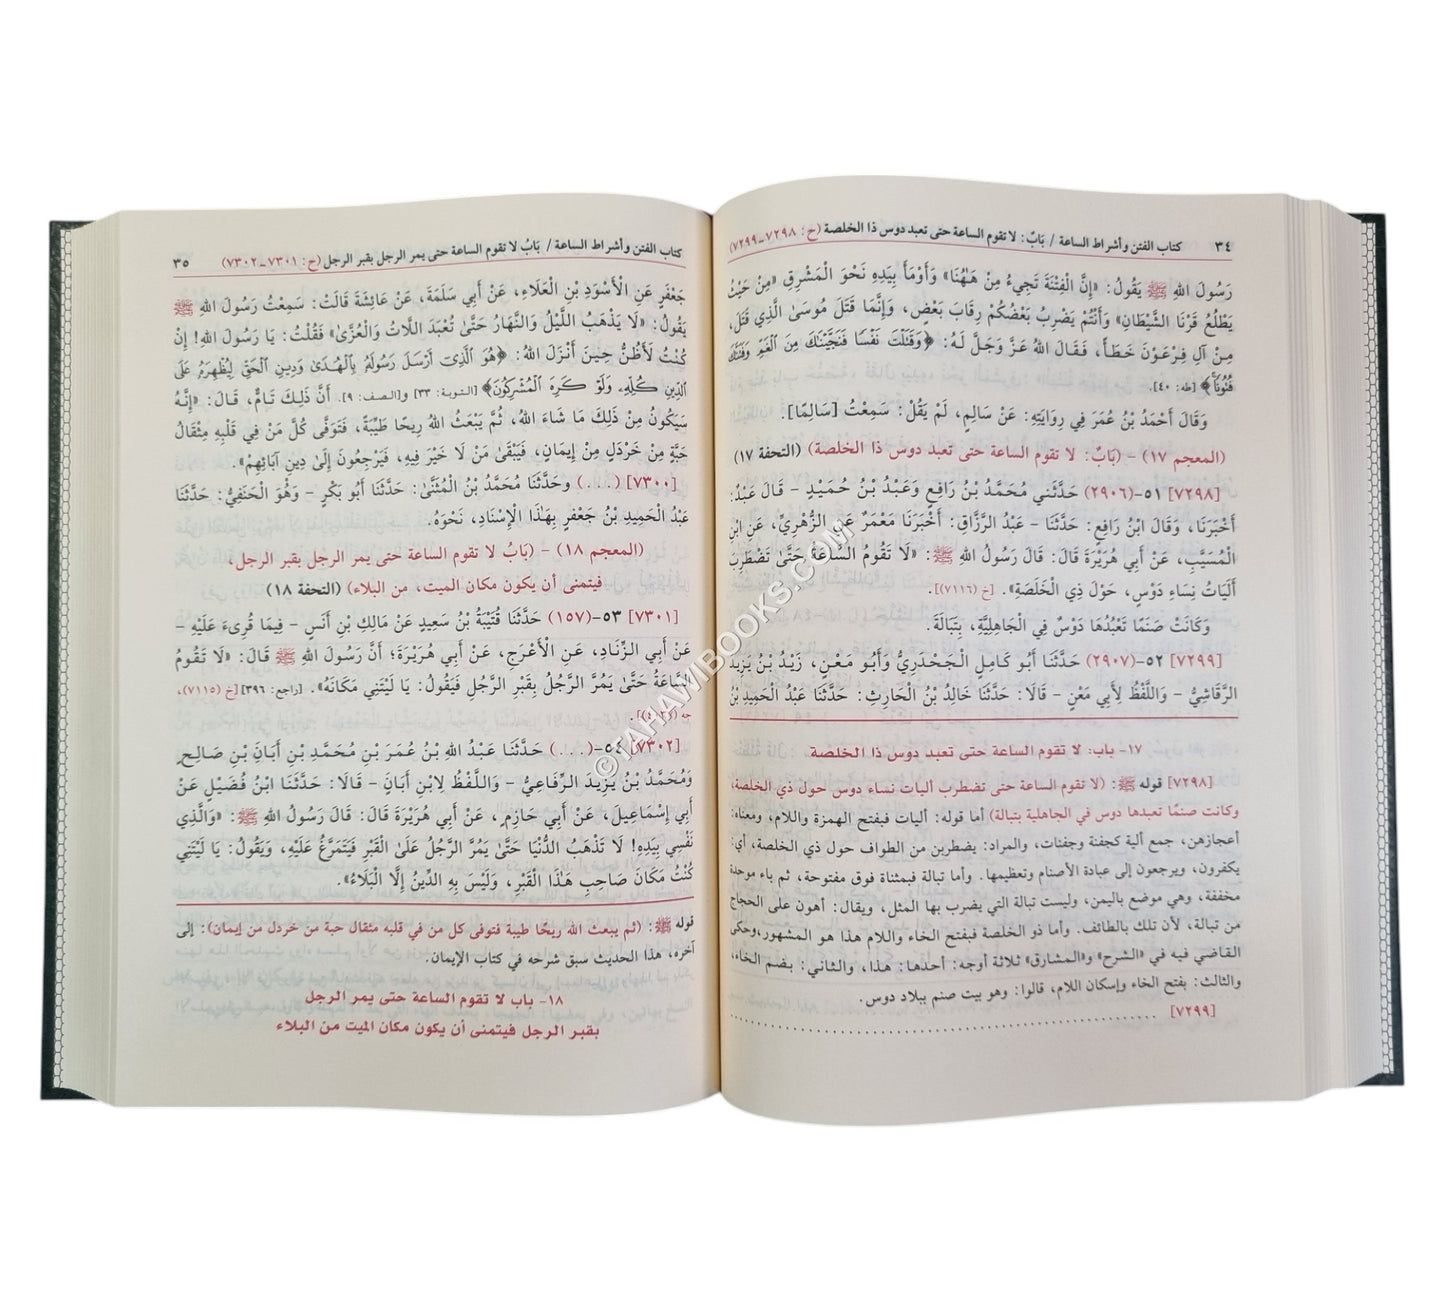 ٣٤ كتاب الفتن وأشراط الساعة / بَابٌ: لا تقوم الساعة حتى تعبد دوس ذا الخلصة (ح: ٧٢٩٨-٧٢٩٩)
رَسُولَ اللهِ ﷺ يَقُولُ: «إِنَّ الْفِتْنَةَ تَجِيءُ مِنْ هٰهُنَا» وَأَوْمَأَ بِيَدِهِ نَحْوَ الْمَشْرِقِ «مِنْ حَيْثُ
يَطْلُعُ قَرْنَا الشَّيْطَانِ» وَأَنْتُمْ يَضْرِبُ بَعْضُكُمْ رِقَابَ بَعْضٍ، وَإِنَّمَا قَتَلَ مُوسَىٰ الَّذِي قَتَلَ،
مِنْ آلِ فِرْعَوْنَ خَطَأً، فَقَالَ اللهُ عَزَّ وَجَلَّ لَهُ: ﴿وَقَتَلْتَ نَفْسًا فَنَجَّيْنَٰكَ مِنَ ٱلْغَمِّ وَفَتَنَّٰكَ
فُتُونًا﴾ [طه: ٤٠].
وَقَالَ أَحْمَدُ بْنُ عُمَرَ فِي رِوَايَتِهِ: عَنْ سَالِمٍ، لَمْ يَقُلْ: سَمِعْتُ [سَالِمًا].
(المعجم ١٧) - (بَابٌ: لا تقوم الساعة حتى تعبد دوس ذا الخلصة) (التحفة ١٧)
[٧٢٩٨] ٥١-(٢٩٠٦) حَدَّثَنِي مُحَمَّدُ بْنُ رَافِعٍ وَعَبْدُ بْنُ حُمَيْدٍ - قَالَ عَبْدٌ:
أَخْبَرَنَا، وَقَالَ ابْنُ رَافِعٍ: حَدَّثَنَا - عَبْدُ الرَّزَّاقِ: أَخْبَرَنَا مَعْمَرٌ عَنِ الزُّهْرِيِّ، عَنِ ابْنِ
الْمُسَيَّبِ، عَنْ أَبِي هُرَيْرَةَ قَالَ: قَالَ رَسُولُ اللهِ ﷺ: «لَا تَقُومُ السَّاعَةُ حَتَّىٰ تَضْطَرِبَ
أَلَيَاتُ نِسَاءِ دَوْسٍ، حَوْلَ ذِي الْخَلَصَةِ». [خ (٧١١٦)].
وَكَانَتْ صَنَمًا تَعْبُدُهَا دَوْسٌ فِي الْجَاهِلِيَّةِ، بِتَبَالَةَ.
[٧٢٩٩] ٥٢-(٢٩٠٧) حَدَّثَنَا أَبُو كَامِلٍ الْجَحْدَرِيُّ وَأَبُو مَعْنٍ، زَيْدُ بْنُ يَزِيدَ
الرَّقَاشِيُّ - وَاللَّفْظُ لِأَبِي مَعْنٍ - قَالَا: حَدَّثَنَا خَالِدُ بْنُ الْحَارِثِ: حَدَّثَنَا عَبْدُ الْحَمِيدِ بْنُ
١٧- باب: لا تقوم الساعة حتى تعبد دوس ذا الخلصة
[٧٢٩٨] قوله ﷺ: (لا تقوم الساعة حتى تضطرب أليات نساء دوس حول ذي الخلصة،
وكانت صنمًا تعبدها دوس في الجاهلية بتبالة) أما قوله: أليات فبفتح الهمزة واللام، ومعناه:
أعجازهن، جمع ألية كجفنة وجفنات، والمراد: يضطربن من الطواف حول ذي الخلصة، أي:
يكفرون، ويرجعون إلى عبادة الأصنام وتعظيمها. وأما تبالة فبمثناة فوق مفتوحة، ثم باء موحدة
مخففة، وهي موضع باليمن، وليست تبالة التي يضرب بها المثل، ويقال: أهون على الحجاج
من تبالة، لأن تلك بالطائف. وأما ذو الخلصة فبفتح الخاء واللام هذا هو المشهور، وحكى
القاضي فيه في «الشرح» و«المشارق» ثلاثة أوجه: أحدها: هذا، والثاني: بضم الخاء،
والثالث: بفتح الخاء وإسكان اللام، قالوا: وهو بيت صنم ببلاد دوس.
[٧٢٩٩] ........................................
كتاب الفتن وأشراط الساعة / بَابُ لا تقوم الساعة حتى يمر الرجل بقبر الرجل (ح: ٧٣٠١-٧٣٠٢) ٣٥
جَعْفَرٍ عَنِ الْأَسْوَدِ بْنِ الْعَلَاءِ، عَنْ أَبِي سَلَمَةَ، عَنْ عَائِشَةَ قَالَتْ: سَمِعْتُ رَسُولَ اللهِ ﷺ
يَقُولُ: «لَا يَذْهَبُ اللَّيْلُ وَالنَّهَارُ حَتَّىٰ تُعْبَدَ اللَّاتُ وَالْعُزَّىٰ» فَقُلْتُ: يَا رَسُولَ اللهِ! إِنْ
كُنْتُ لَأَظُنُّ حِينَ أَنْزَلَ اللهُ: ﴿هُوَ ٱلَّذِىٓ أَرْسَلَ رَسُولَهُۥ بِٱلْهُدَىٰ وَدِينِ ٱلْحَقِّ لِيُظْهِرَهُۥ عَلَى
ٱلدِّينِ كُلِّهِۦ وَلَوْ كَرِهَ ٱلْمُشْرِكُونَ﴾ [التوبة: ٣٣] و[الصف: ٩]. أَنَّ ذَلِكَ تَامٌّ، قَالَ: «إِنَّهُ
سَيَكُونُ مِنْ ذَلِكَ مَا شَاءَ اللهُ، ثُمَّ يَبْعَثُ اللهُ رِيحًا طَيِّبَةً، فَتَوَفَّى كُلَّ مَنْ فِي قَلْبِهِ مِثْقَالُ
حَبَّةٍ مِنْ خَرْدَلٍ مِنْ إِيمَانٍ، فَيَبْقَىٰ مَنْ لَا خَيْرَ فِيهِ، فَيَرْجِعُونَ إِلَىٰ دِينِ آبَائِهِمْ».
[٧٣٠٠] (...) وحَدَّثَنَا مُحَمَّدُ بْنُ الْمُثَنَّىٰ: حَدَّثَنَا أَبُو بَكْرٍ - وَهُوَ الْحَنَفِيُّ: حَدَّثَنَا
عَبْدُ الْحَمِيدِ بْنُ جَعْفَرٍ بِهَذَا الْإِسْنَادِ، نَحْوَهُ.
(المعجم ١٨) - (بَابُ لا تقوم الساعة حتى يمر الرجل بقبر الرجل،
فيتمنى أن يكون مكان الميت، من البلاء) (التحفة ١٨)
[٧٣٠١] ٥٣-(١٥٧) حَدَّثَنَا قُتَيْبَةُ بْنُ سَعِيدٍ عَنْ مَالِكِ بْنِ أَنَسٍ - فِيمَا قُرِىءَ عَلَيْهِ -
عَنْ أَبِي الزِّنَادِ، عَنِ الْأَعْرَجِ، عَنْ أَبِي هُرَيْرَةَ؛ أَنَّ رَسُولَ اللهِ ﷺ قَالَ: «لَا تَقُومُ
السَّاعَةُ حَتَّىٰ يَمُرَّ الرَّجُلُ بِقَبْرِ الرَّجُلِ فَيَقُولُ: يَا لَيْتَنِي مَكَانَهُ». [راجع: ٣٩٦] [خ (٧١١٥)،
جه
[٧٣٠٢] ٥٤-(...) حَدَّثَنَا عَبْدُ اللهِ بْنُ عُمَرَ بْنِ مُحَمَّدِ بْنِ أَبَانَ بْنِ صَالِحٍ
وَمُحَمَّدُ بْنُ يَزِيدَ الرِّفَاعِيُّ - وَاللَّفْظُ لِابْنِ أَبَانَ - قَالَا: حَدَّثَنَا ابْنُ فُضَيْلٍ عَنْ
أَبِي إِسْمَاعِيلَ، عَنْ أَبِي حَازِمٍ، عَنْ أَبِي هُرَيْرَةَ قَالَ: قَالَ رَسُولُ اللهِ ﷺ: «وَالَّذِي
نَفْسِي بِيَدِهِ! لَا تَذْهَبُ الدُّنْيَا حَتَّىٰ يَمُرَّ الرَّجُلُ عَلَىٰ الْقَبْرِ فَيَتَمَرَّغُ عَلَيْهِ، وَيَقُولُ: يَا لَيْتَنِي
كُنْتُ مَكَانَ صَاحِبِ هَذَا الْقَبْرِ، وَلَيْسَ بِهِ الدِّينُ إِلَّا الْبَلَاءُ».
قوله ﷺ: (ثم يبعث الله ريحًا طيبة فتوفى كل من في قلبه مثقال حبة من خردل من إيمان): إلى
آخره، هذا الحديث سبق شرحه في كتاب الإيمان.
١٨- باب لا تقوم الساعة حتى يمر الرجل
بقبر الرجل فيتمنى أن يكون مكان الميت من البلاء
©TAHAWIBOOKS.COM